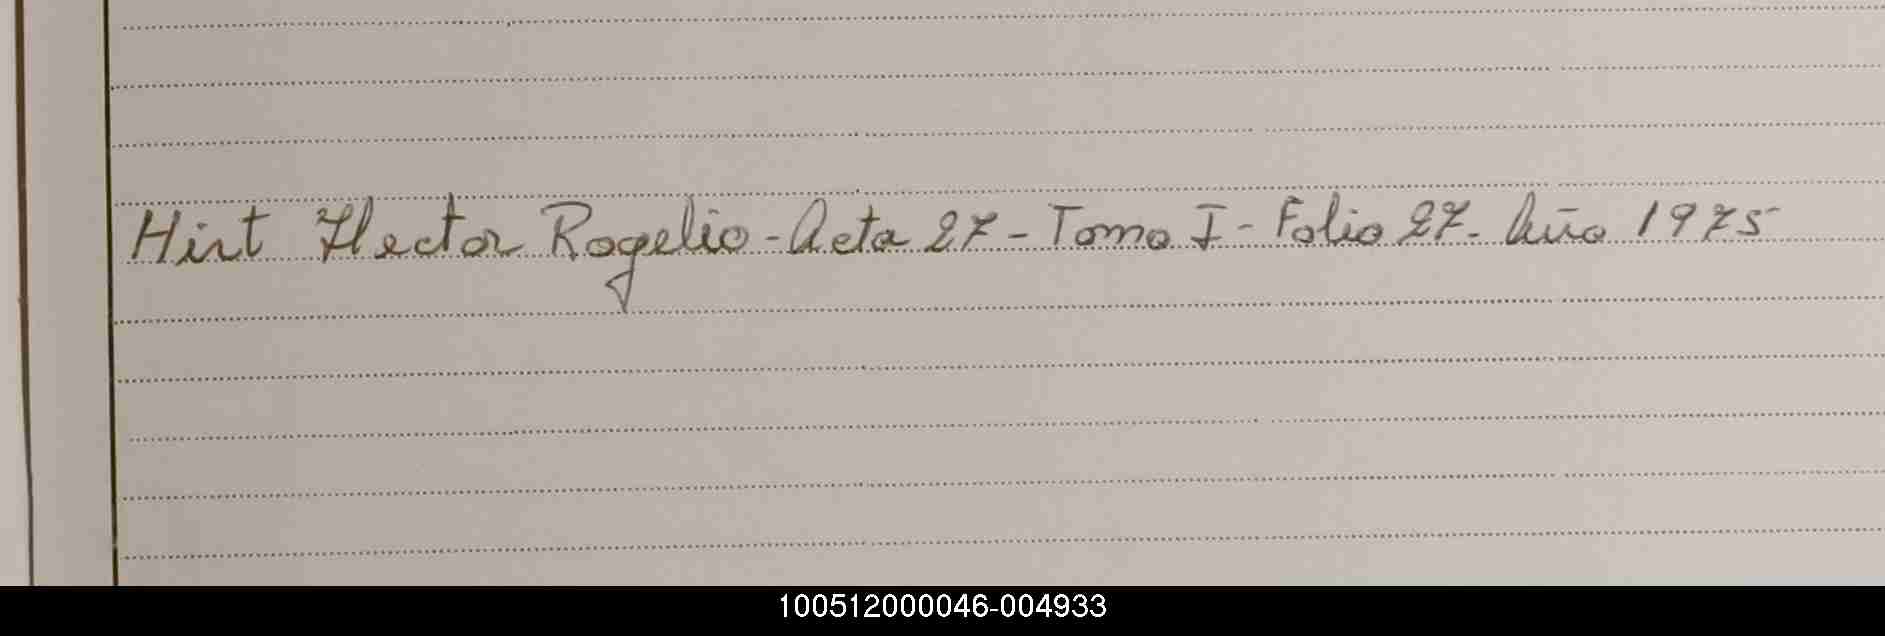 Hirt Hector Rogelio - Acta 27 - Tomo I - Folio 27. Año 1975
100512000046-004933